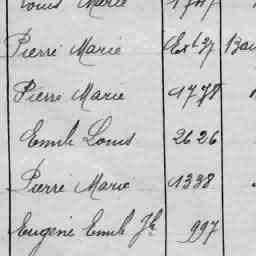 Louis Marie 1747
Pierre Marie Ext 37 Bou
Pierre Marie 1778
Emile Louis 2626
Pierre Marie 1338
Eugene Emile Jh 997